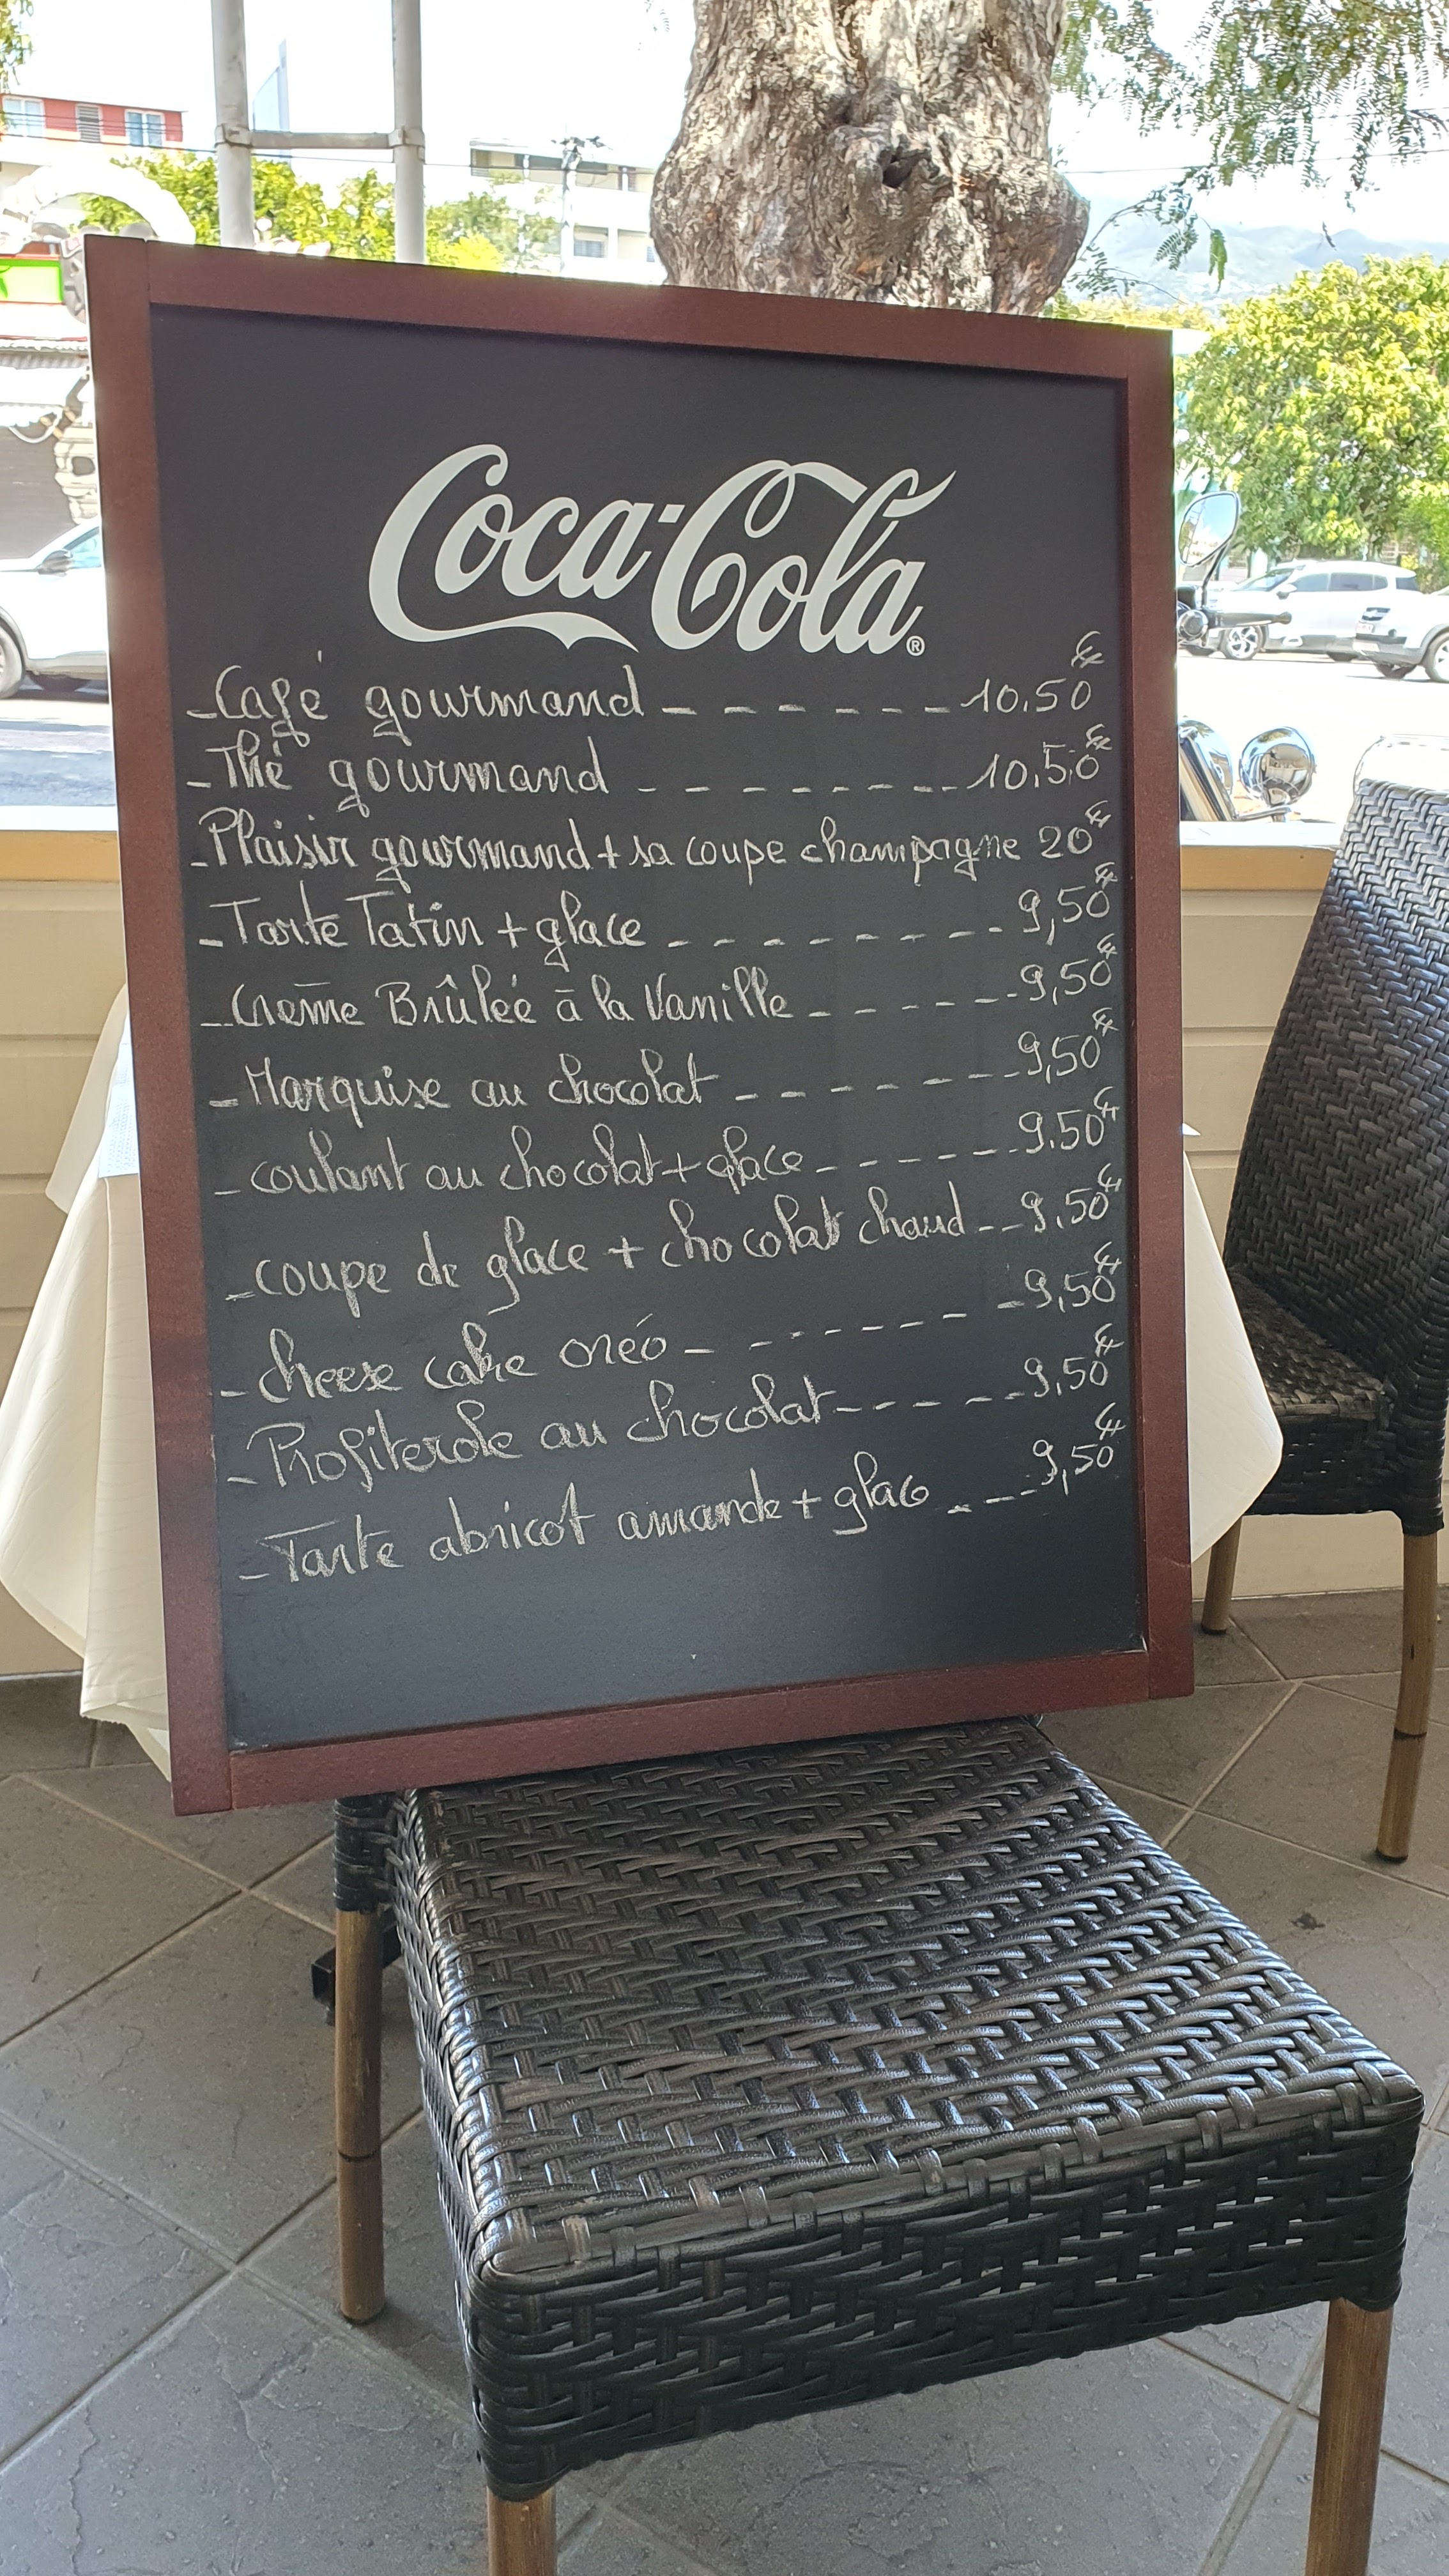 Coca-Cola®
- Café gourmand - - - - - - - 10.50€
- Thé gourmand - - - - - - - - 10.50€
- Plaisir gourmand + sa coupe champagne 20€
- Tarte Tatin + glace - - - - - - - - - 9,50€
- Crème Brûlée à la Vanille - - - - - - 9,50€
- Marquise au chocolat - - - - - - - 9,50€
- coulant au chocolat + glace - - - - - - 9.50€
- coupe de glace + chocolat chaud - - 9.50€
- cheese cake oréo - - - - - - - - 9,50€
- Profiterole au chocolat - - - - - - 9.50€
- Tarte abricot amande + glace - - - 9,50€